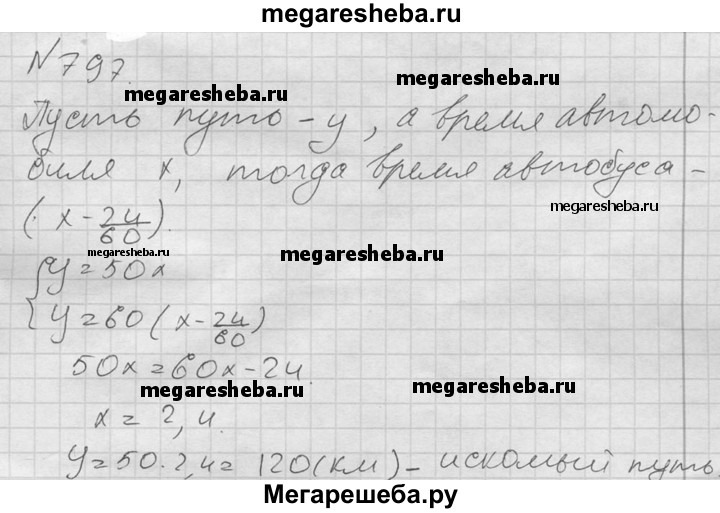 megaresheba.ru
№797.
megaresheba.ru
Пусть путь – y, а время автомо-
биля x, тогда время автобуса –
megaresheba.ru
(x - 24/60).
megaresheba.ru
megaresheba.ru
{ y = 50x
y = 60 (x - 24/60)
50x = 60x - 24
megaresheba.ru
megaresheba.ru
x = 2,4.
y = 50·2,4 = 120 (км) – искомый путь.
Мегарешеба.ру